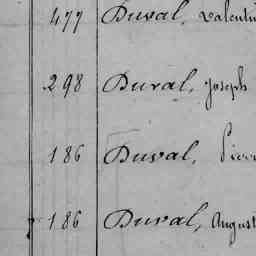 477 Duval, Valentin
298 Duval, Joseph
186 Duval, Pierr
186 Duval, August